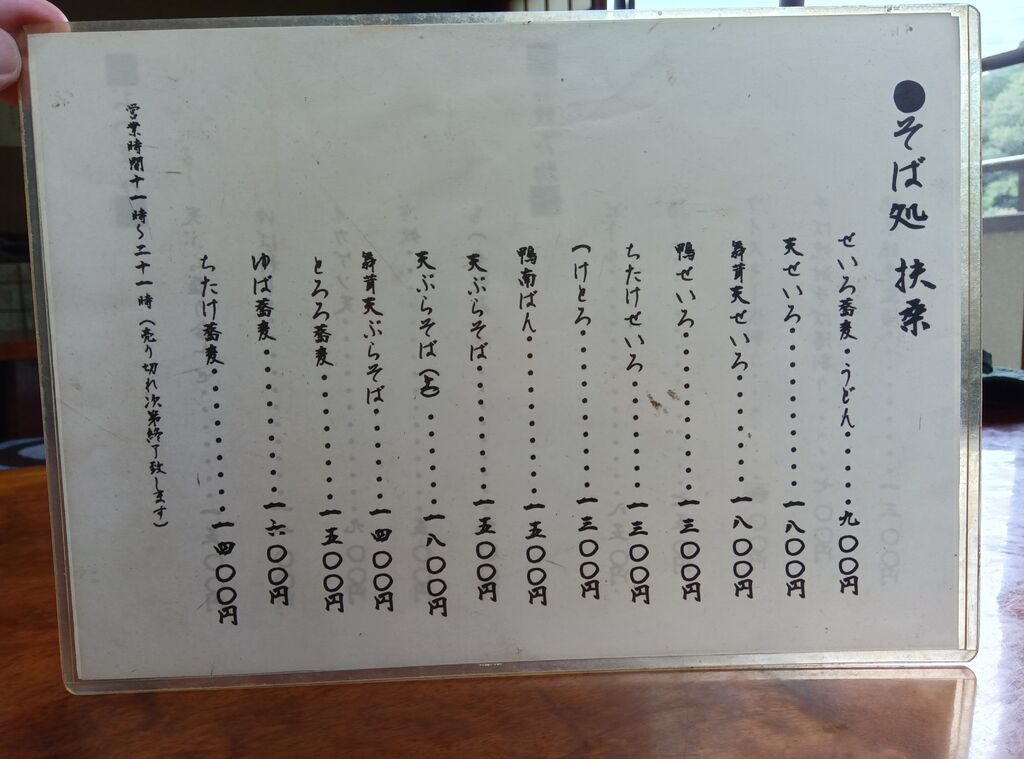 ●そば処 扶桑
せいろ蕎麦・うどん・・・・・・九〇〇円
天せいろ・・・・・・・・・・一八〇〇円
舞茸天せいろ・・・・・・・・一八〇〇円
鴨せいろ・・・・・・・・・・一三〇〇円
ちたけせいろ・・・・・・・・一三〇〇円
つけとろ・・・・・・・・・・一三〇〇円
鴨南ばん・・・・・・・・・・一五〇〇円
天ぷらそば・・・・・・・・・一五〇〇円
天ぷらそば(上)・・・・・・一八〇〇円
舞茸天ぷらそば・・・・・・一四〇〇円
とろろ蕎麦・・・・・・・・・一五〇〇円
ゆば蕎麦・・・・・・・・・・一六〇〇円
ちたけ蕎麦・・・・・・・・・一四〇〇円
営業時間十一時〜二十一時(売り切れ次第終了致します)